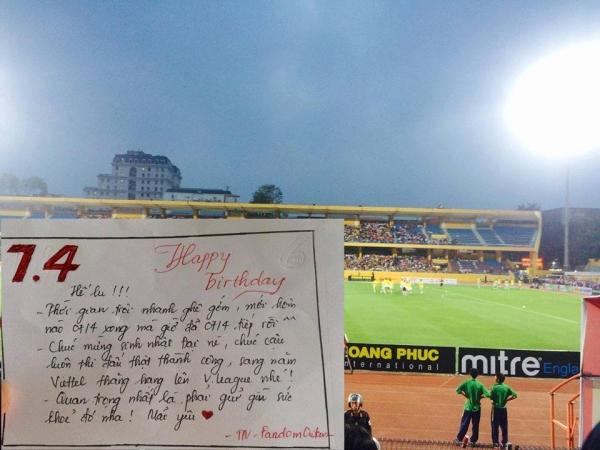 7.4
Happy
birthday
Hế lu !!!
- Thời gian trôi nhanh ghê gớm, mới hôm
nào 07/4 xong mà giờ đã 07/4 tiếp rồi ^^
- Chúc mừng sinh nhật trai nè, chúc cậu
luôn thi đấu thật thành công, sang năm
Viettel thăng hạng lên V.league nhé!
- Quan trọng nhất là phải giữ gìn sức
khoẻ đó nha! Mãi yêu ♥
- TN - Fandom
OANG PHUC
International
mitre
Engla